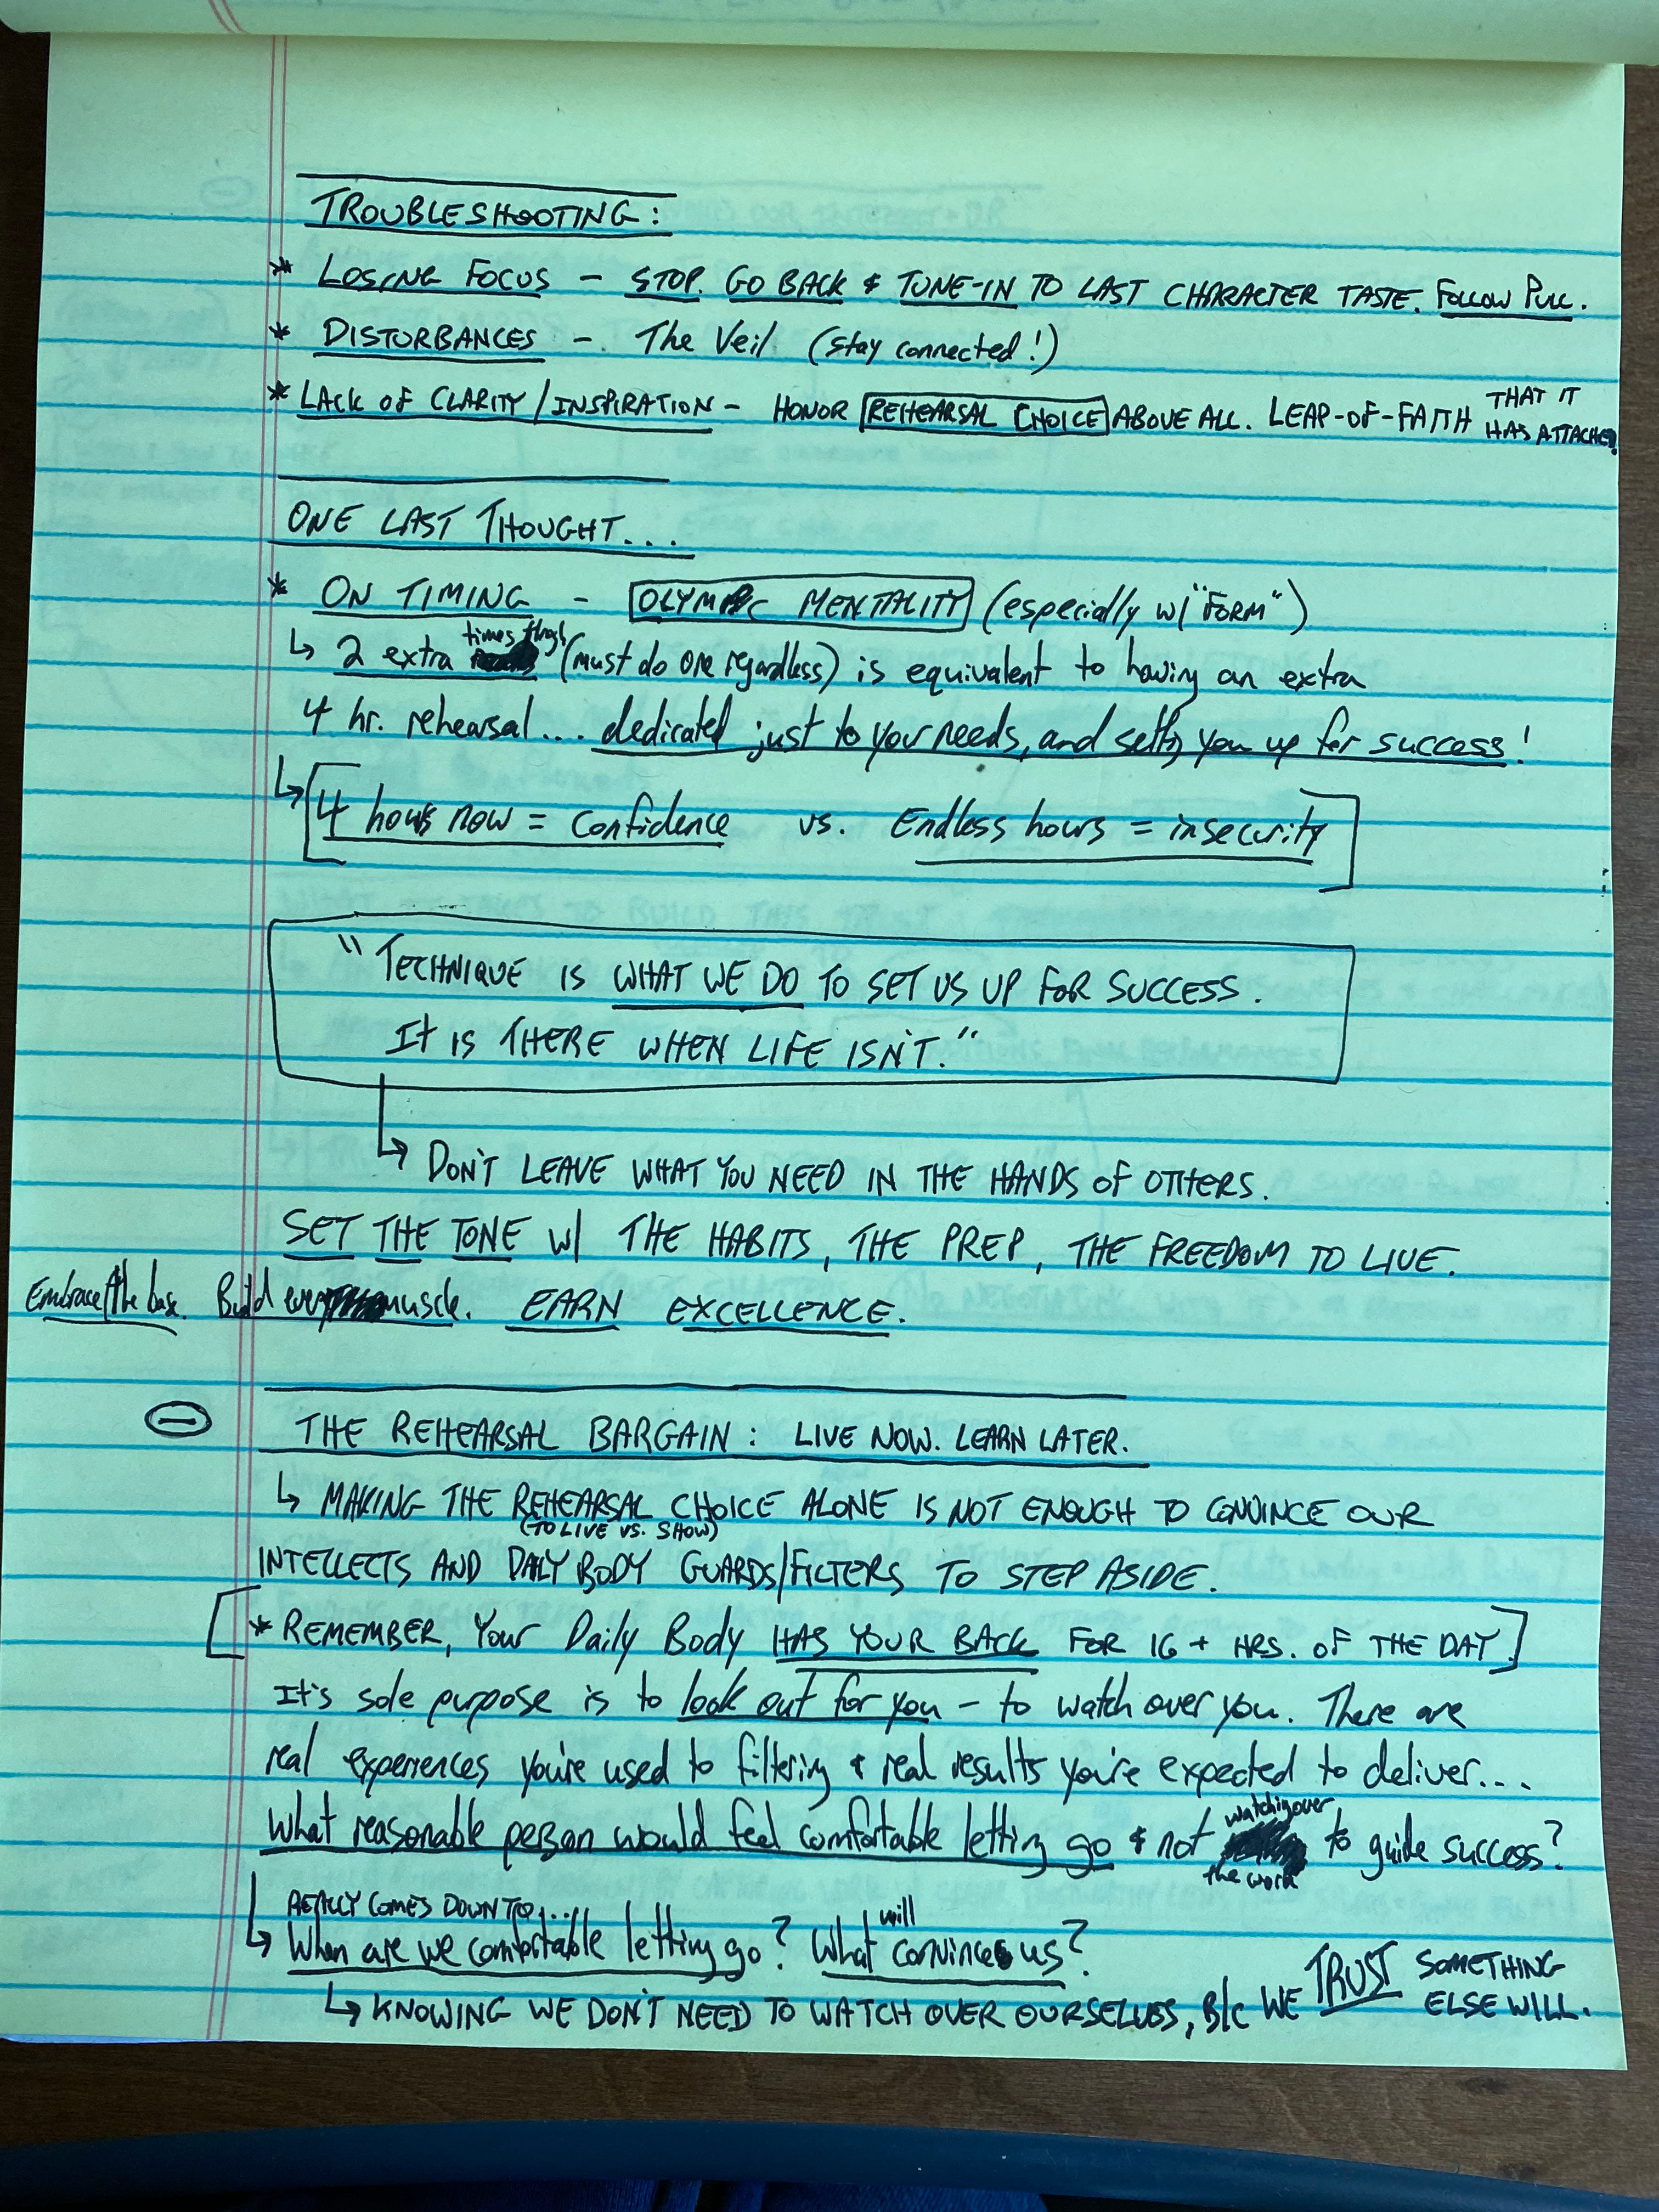 TROUBLESHOOTING:
* LOSING FOCUS - STOP. GO BACK & TUNE-IN TO LAST CHARACTER TASTE. FOLLOW PULL.
* DISTURBANCES - The Veil (stay connected!)
* LACK OF CLARITY/INSPIRATION - HONOR REHEARSAL CHOICE ABOVE ALL. LEAP-OF-FAITH THAT IT HAS ATTACHED!
ONE LAST THOUGHT...
* ON TIMING - OLYMPIC MENTALITY (especially w/ "FORM")
↳ 2 extra times through (must do one regardless) is equivalent to having an extra
4 hr. rehearsal.... dedicated just to your needs, and setting you up for success!
↳ [4 hours now = confidence vs. Endless hours = insecurity]
"TECHNIQUE IS WHAT WE DO TO SET US UP FOR SUCCESS.
It IS THERE WHEN LIFE ISN'T."
↳ DON'T LEAVE WHAT YOU NEED IN THE HANDS OF OTHERS.
SET THE TONE w/ THE HABITS, THE PREP, THE FREEDOM TO LIVE.
Embrace the base. Build every muscle. EARN EXCELLENCE.
THE REHEARSAL BARGAIN: LIVE NOW. LEARN LATER.
↳ MAKING THE REHEARSAL CHOICE ALONE IS NOT ENOUGH TO CONVINCE OUR
(TO LIVE VS. SHOW)
INTELLECTS AND DAILY BODY GUARDS/FILTERS TO STEP ASIDE.
[* REMEMBER, Your Daily Body HAS YOUR BACK FOR 16+ HRS. OF THE DAY]
It's sole purpose is to look out for you - to watch over you. There are
real experiences you're used to filtering & real results you're expected to deliver...
What reasonable person would feel comfortable letting go & not watching over the work to guide success?
REALLY COMES DOWN TO...
↳ When are we comfortable letting go? What will convince us?
↳ KNOWING WE DON'T NEED TO WATCH OVER OURSELVES, B/C WE TRUST SOMETHING ELSE WILL.